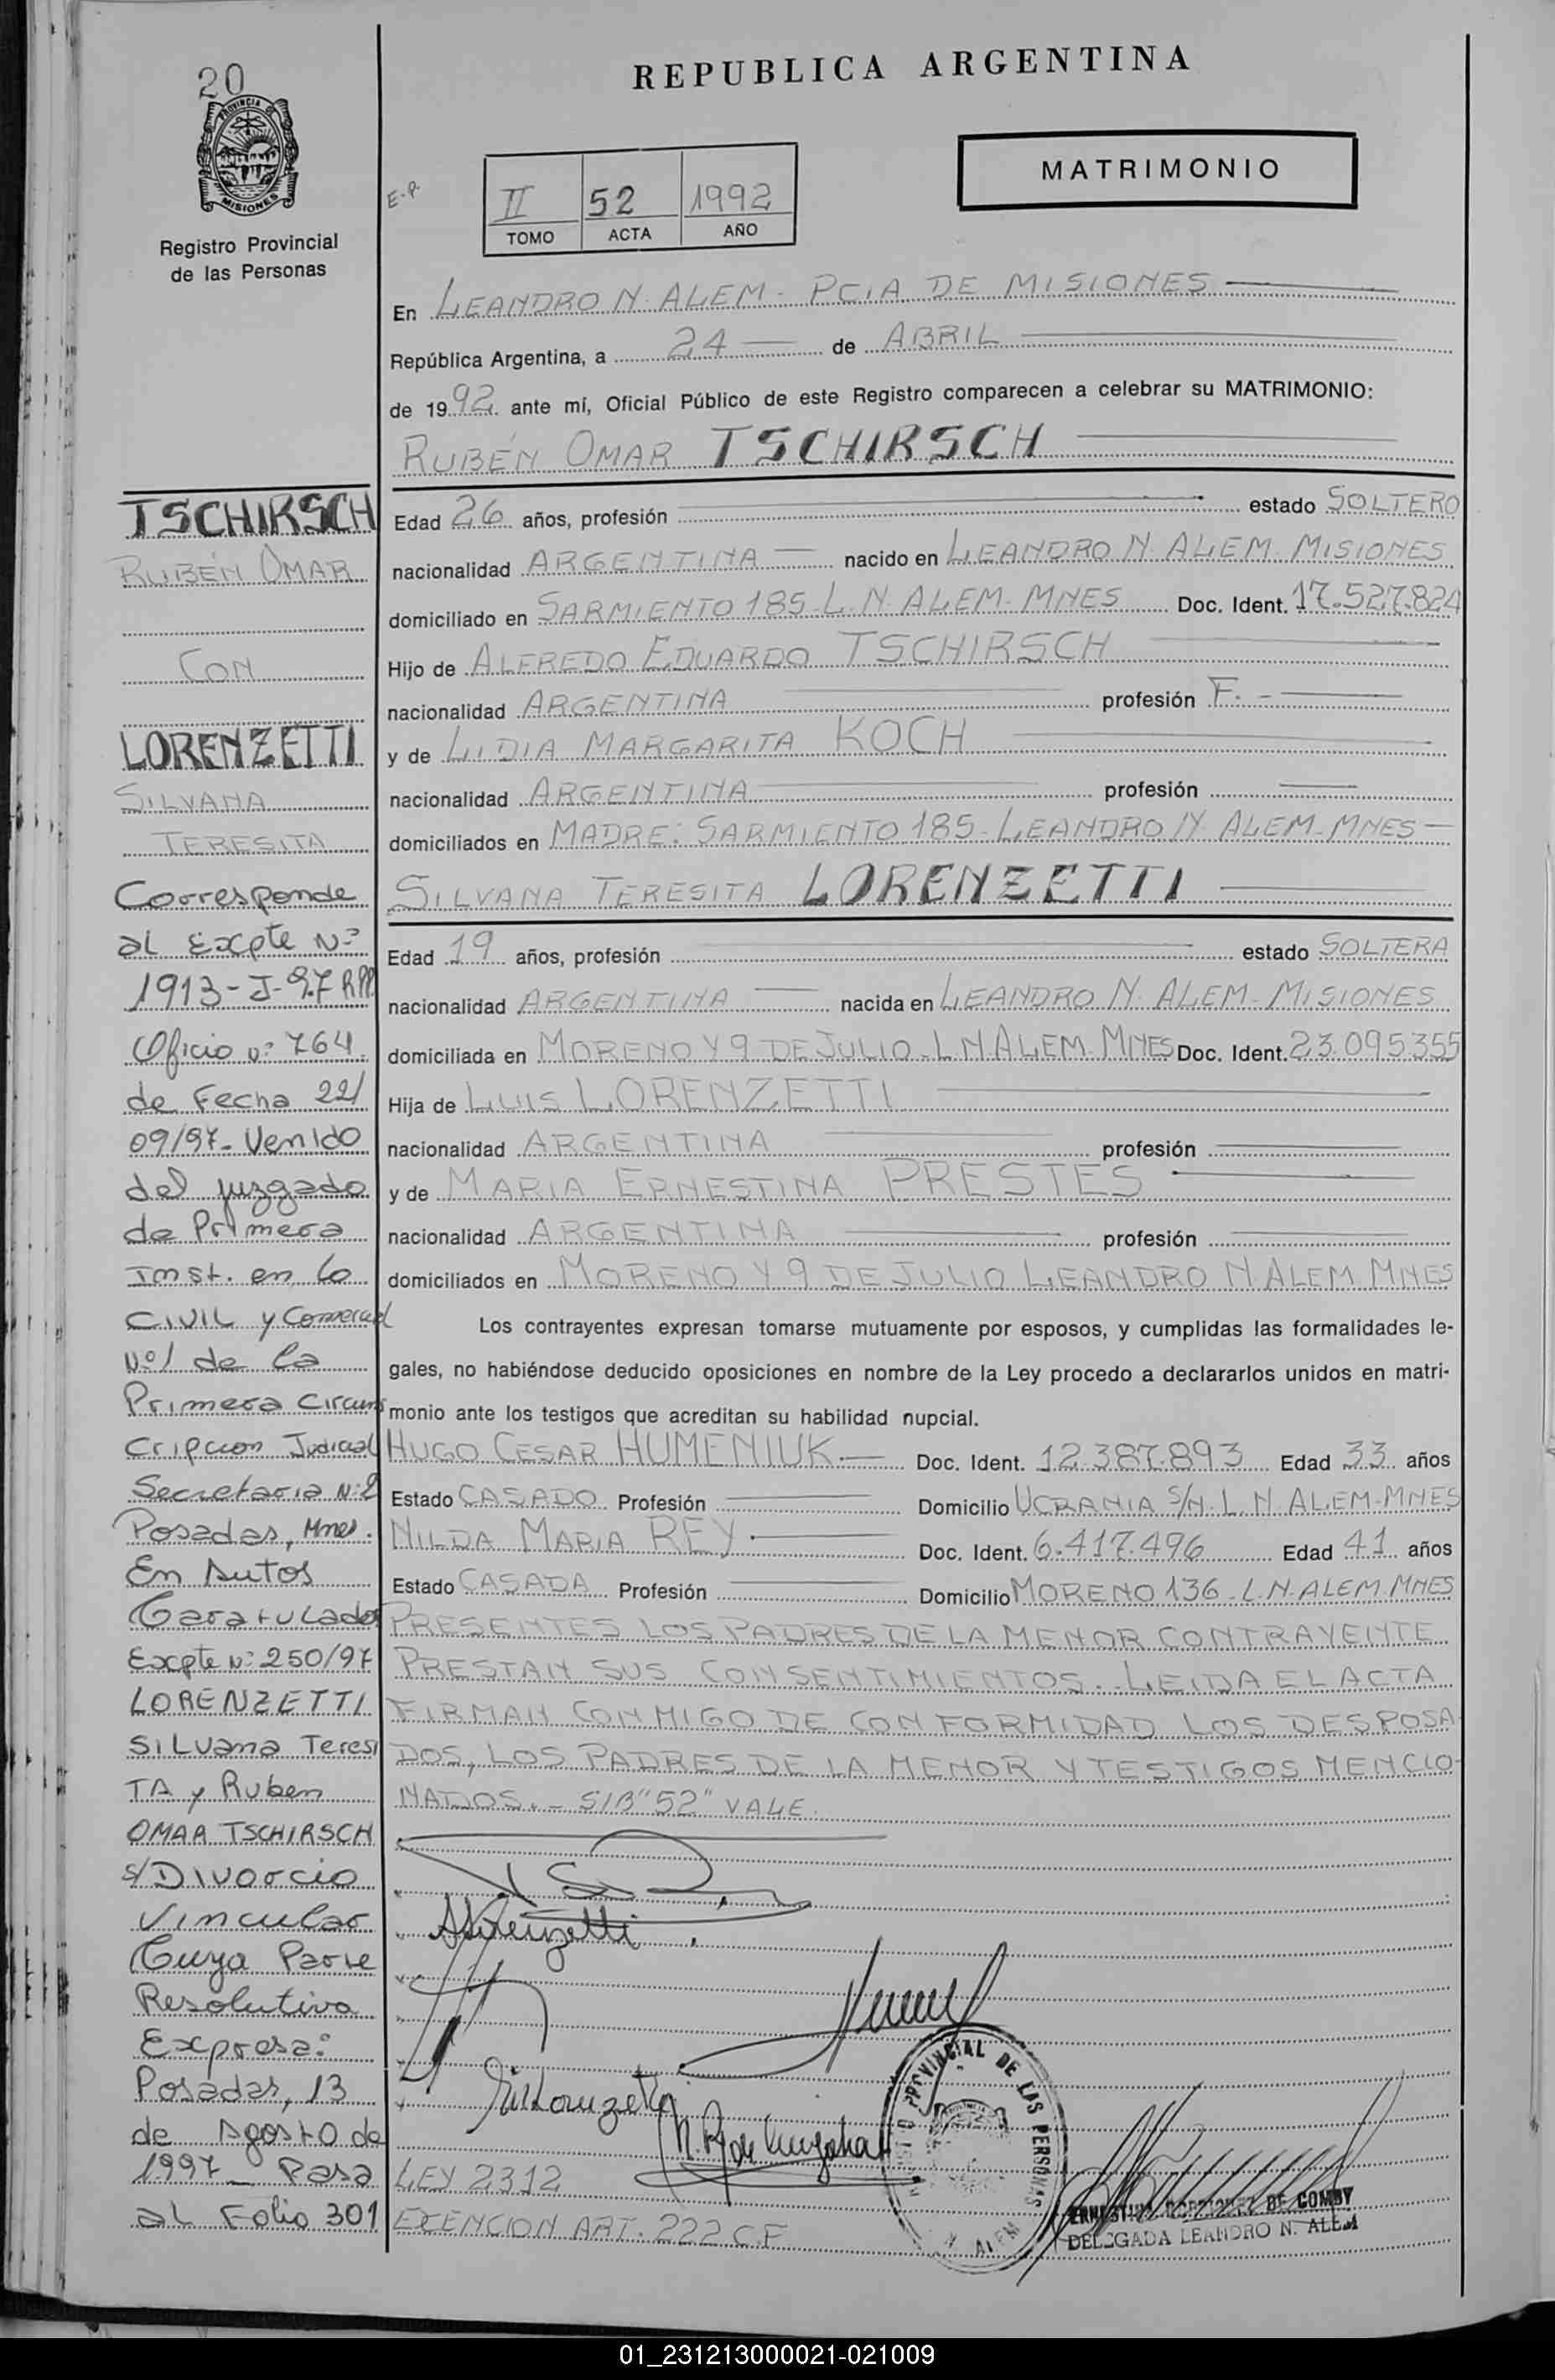 20
PROVINCIA DE
MISIONES
Registro Provincial
de las Personas
REPUBLICA ARGENTINA
E-P.
II 52 1992
TOMO ACTA AÑO
MATRIMONIO
En LEANDRO N. ALEM - PCIA DE MISIONES
República Argentina, a 24 de ABRIL
de 1992 ante mí, Oficial Público de este Registro comparecen a celebrar su MATRIMONIO:
RUBÉN OMAR TSCHIRSCH
Edad 26 años, profesión estado SOLTERO
nacionalidad ARGENTINA nacido en LEANDRO N. ALEM - MISIONES
domiciliado en SARMIENTO 185 - L. N. ALEM - MNES Doc. Ident. 17.527.824
Hijo de ALFREDO EDUARDO TSCHIRSCH
nacionalidad ARGENTINA profesión F.-
y de LIDIA MARGARITA KOCH
nacionalidad ARGENTINA profesión
domiciliados en MADRE: SARMIENTO 185 - LEANDRO N ALEM - MNES
SILVANA TERESITA LORENZETTI
Edad 19 años, profesión estado SOLTERA
nacionalidad ARGENTINA nacida en LEANDRO N. ALEM - MISIONES
domiciliada en MORENO Y 9 DE JULIO - L N ALEM - MNES Doc. Ident. 23.095355
Hija de LUIS LORENZETTI
nacionalidad ARGENTINA profesión
y de MARIA ERNESTINA PRESTES
nacionalidad ARGENTINA profesión
domiciliados en MORENO Y 9 DE JULIO LEANDRO N ALEM MNES
Los contrayentes expresan tomarse mutuamente por esposos, y cumplidas las formalidades le-
gales, no habiéndose deducido oposiciones en nombre de la Ley procedo a declararlos unidos en matri-
monio ante los testigos que acreditan su habilidad nupcial.
HUGO CESAR HUMENIUK.— Doc. Ident. 12.387.893 Edad 33 años
Estado CASADO Profesión Domicilio UCRANIA S/N. L. N. ALEM-MNES
NILDA MARIA REY Doc. Ident. 6.417.496 Edad 41 años
Estado CASADA Profesión Domicilio MORENO 136 - L. N. ALEM. MNES
PRESENTES LOS PADRES DE LA MENOR CONTRAYENTE
PRESTAN SUS CONSENTIMIENTOS.. LEIDA EL ACTA
FIRMAN CONMIGO DE CONFORMIDAD LOS DESPOSA
DOS, LOS PADRES DE LA MENOR Y TESTIGOS MENCIO-
NADOS. - S/B "52" VALE.
LEY 2312
EXENCION ART. 222 C.F
PROVINCIAL DE LAS PERSONAS
N. ALEM
DE COMBY
DELEGADA LEANDRO N. ALEM
TSCHIRSCH
RUBÉN OMAR
CON
LORENZETTI
SILVANA
TERESITA
Corresponde
al Expte Nº
1913-J-97 RPP
Oficio nº 764
de Fecha 22/
09/97- Venido
del juzgado
de Primera
Inst. en lo
CIVIL y Comercial
Nº 1 de la
Primera Circuns
cripcion Judicial
Secretaria Nº 2
Posadas, Mnes.
En Autos
Caratulados
Expte Nº 250/97
LORENZETTI
SILVana Teresi
TA y Ruben
OMAR TSCHIRSCH
s/DIVorcio
Vincular
Cuya Parte
Resolutiva
Expresa:
Posadas, 13
de Agosto de
1997 - Pasa
al Folio 301
01_231213000021-021009